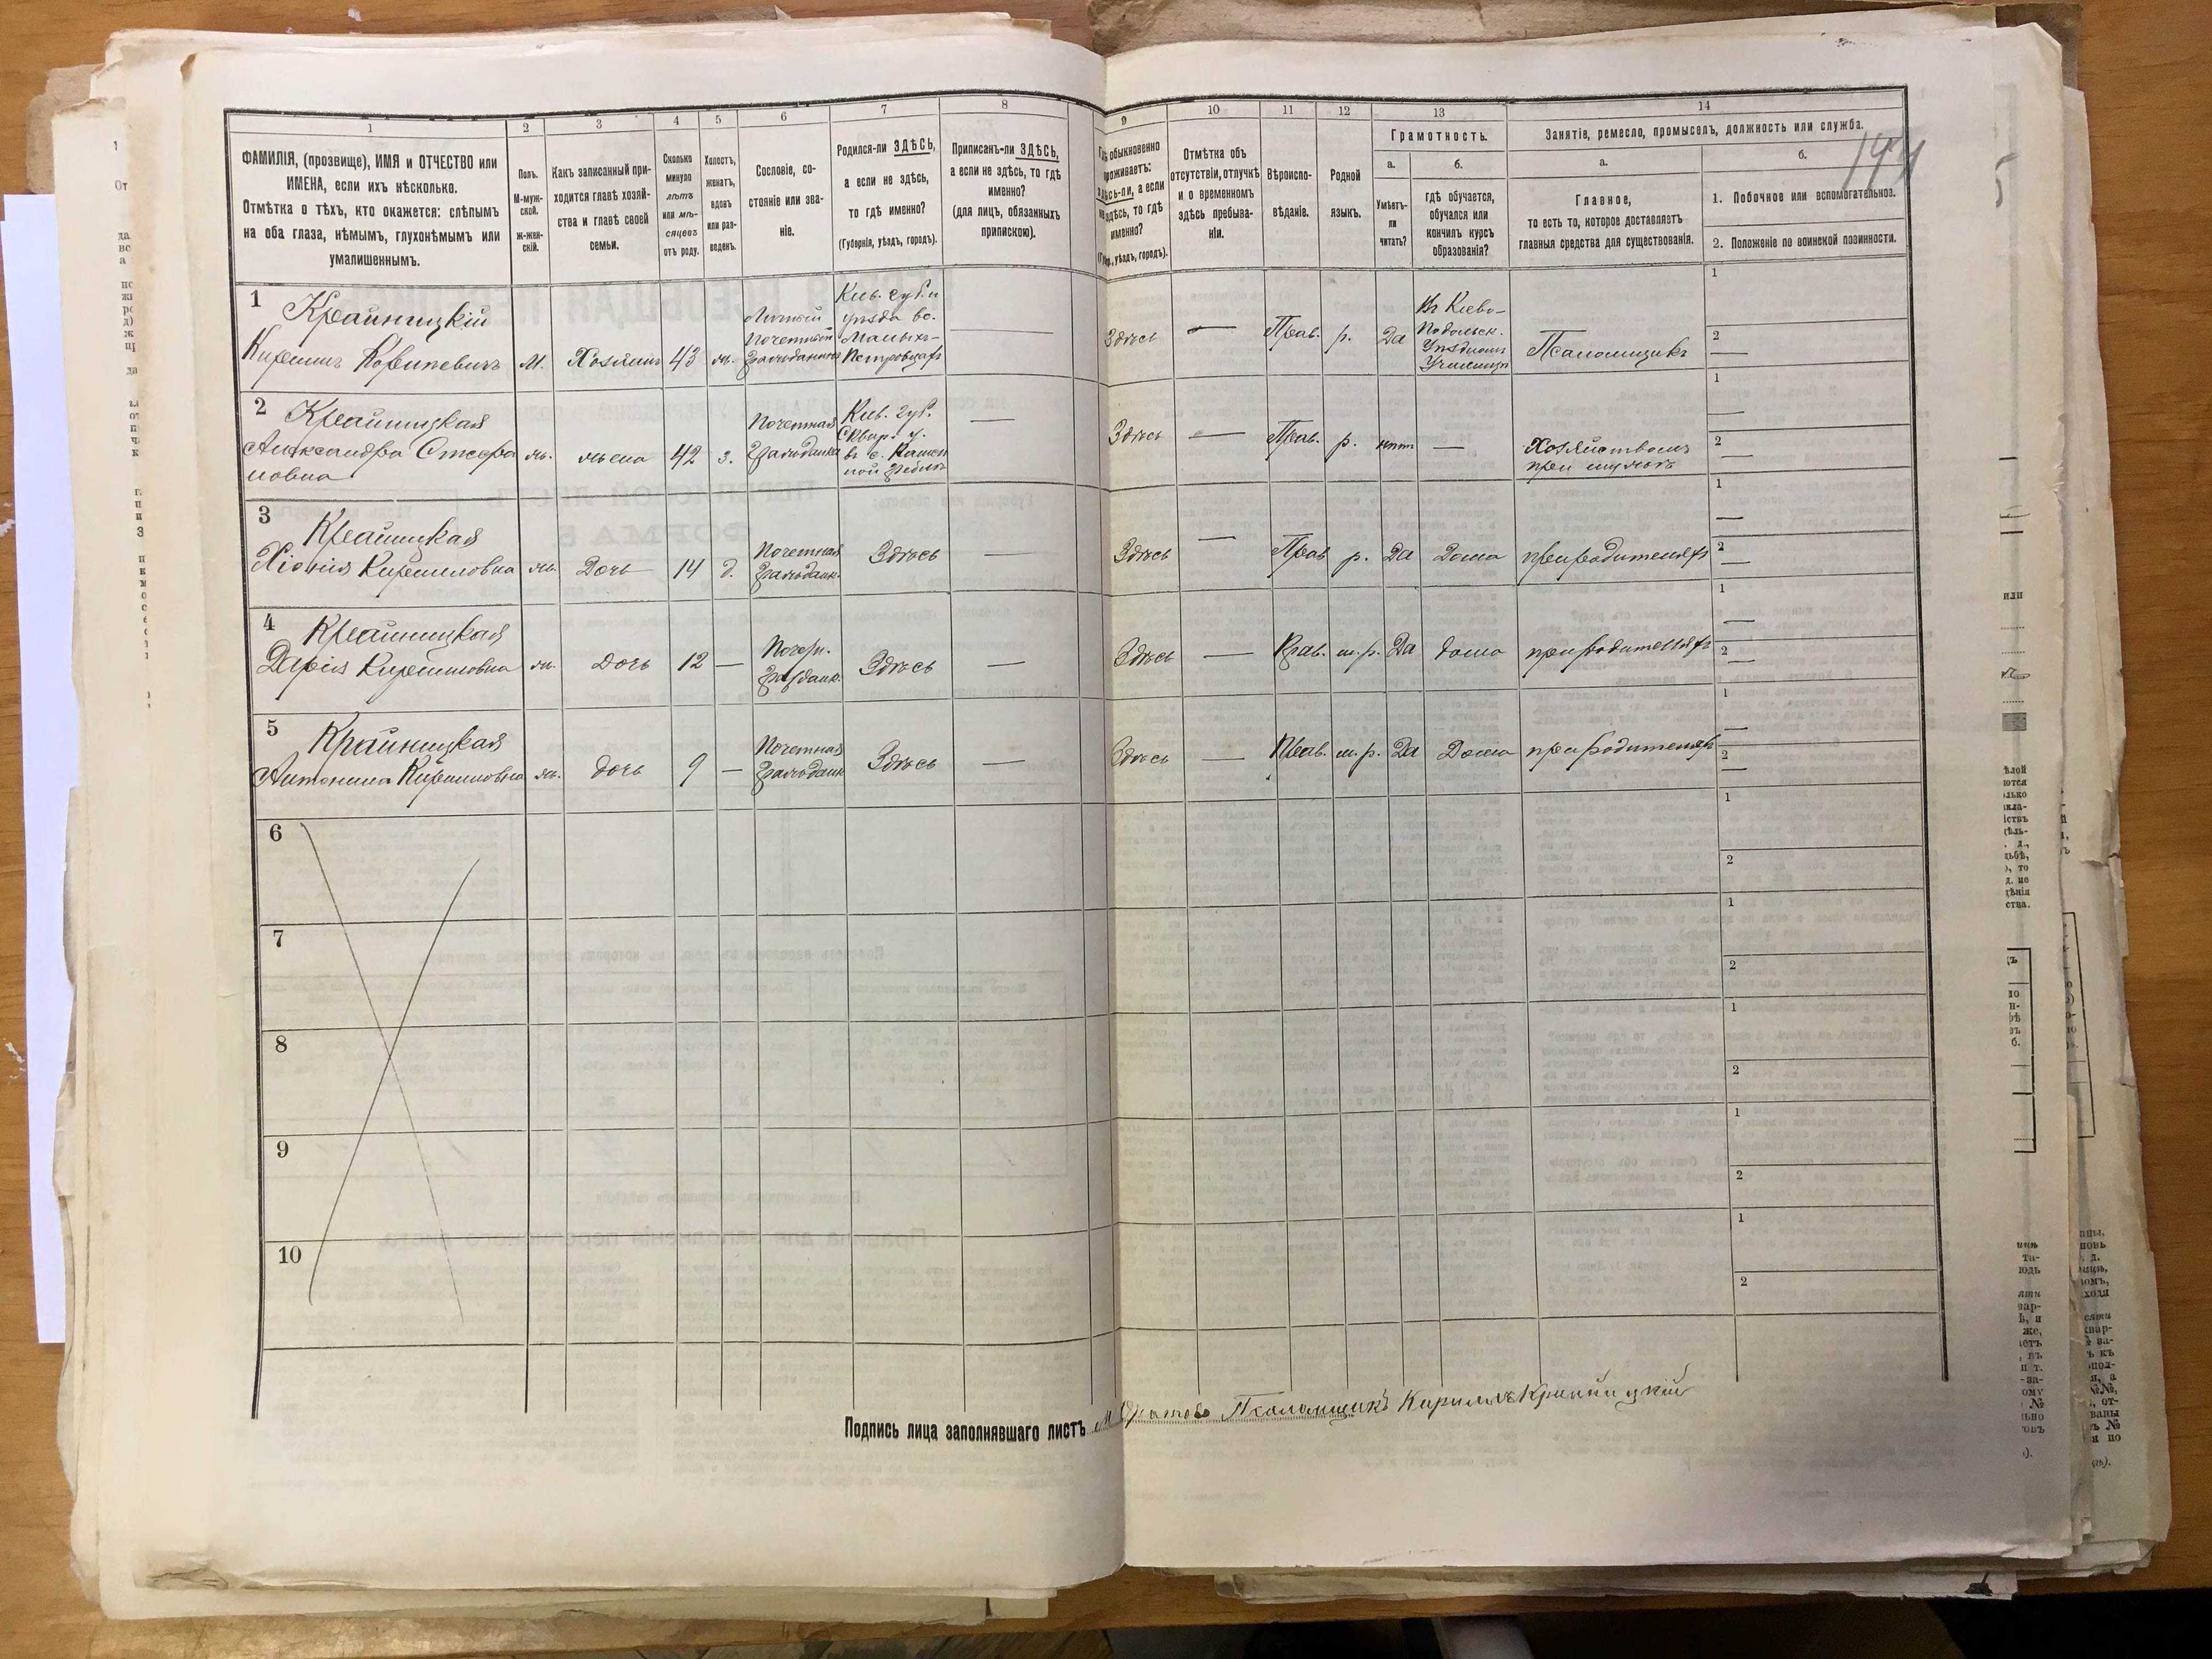 1 2 3 4 5 6 7 8 9 10 11 12 13 14
ФАМИЛІЯ, (прозвище), ИМЯ и ОТЧЕСТВО или
ИМЕНА, если ихъ нѣсколько.
Отмѣтка о тѣхъ, кто окажется: слѣпымъ
на оба глаза, нѣмымъ, глухонѣмымъ или
умалишеннымъ.
Полъ.
М-муж-
ской.
ж-жен-
скій.
Какъ записанный при-
ходится главѣ хозяй-
ства и главѣ своей
семьи.
Сколько
минуло
лѣтъ
или мѣ-
сяцевъ
отъ роду.
Холостъ,
женатъ,
вдовъ
или раз-
веденъ.
Сословіе, со-
стояніе или зва-
ніе.
Родился-ли ЗДѢСЬ,
а если не здѣсь,
то гдѣ именно?
(Губернія, уѣздъ, городъ).
Приписанъ-ли ЗДѢСЬ,
а если не здѣсь, то гдѣ
именно?
(для лицъ, обязанныхъ
припискою).
обыкновенно
проживаетъ:
здѣсь-ли, а если
не здѣсь, то гдѣ
именно?
уѣздъ, городъ).
Отмѣтка объ
отсутствіи, отлучкѣ
и о временномъ
здѣсь пребыва-
ніи.
Вѣроиспо-
вѣданіе.
Родной
языкъ.
Грамотность.
а. б.
Умѣетъ-
ли
читать?
гдѣ обучается,
обучался или
кончилъ курсъ
образованія?
Занятіе, ремесло, промыселъ, должность или служба.
а. б.
Главное,
то есть то, которое доставляетъ
главныя средства для существованія.
1. Побочное или вспомогательное.
2. Положеніе по воинской повинности.
1 Крайницкій
Кирилъ
М. Хозяинъ 43 ж.
Личный
Почетный
Гражданинъ
Кіев. губ. и
уѣзда въ с.
Малыхъ-
Петровцахъ
—
Здѣсь — Прав. р. Да
Въ Кіево-
Подольск.
Уѣздномъ
Училищѣ
Псаломщикъ
1
2 —
2 Крайницкая
Александра Стефа
новна
ж. жена 42 з.
Почетная
Гражданка
Кіев. губ.
Сквир. у.
въ с. Камен
ной Греблѣ
—
Здѣсь — Прав. р. нѣтъ —
Хозяйствомъ
при мужѣ
1 —
2 —
3 Крайницкая
Хіонія Кирилловна
ж. Дочь 14 д.
Почетная
Граждан.
Здѣсь —
Здѣсь — Прав р. Да Дома при родителяхъ
1 —
2 —
4 Крайницкая
Дарія Кирилловна
ж. дочь 12 —
Почетн.
Граждан.
Здѣсь —
Здѣсь — Прав. м. р. Да дома при родителяхъ
1 —
2 —
5 Крайницкая
Антонина Кирилловна
ж. дочь 9 —
Почетная
Граждан
Здѣсь —
Здѣсь — Прав. м. р. Да Дома при родителяхъ
1 —
2 —
6
1
2
7
1
2
8
1
2
9
1
2
10
1
2
Подпись лица заполнявшаго листъ Псаломщикъ Кирилъ Крайницкій